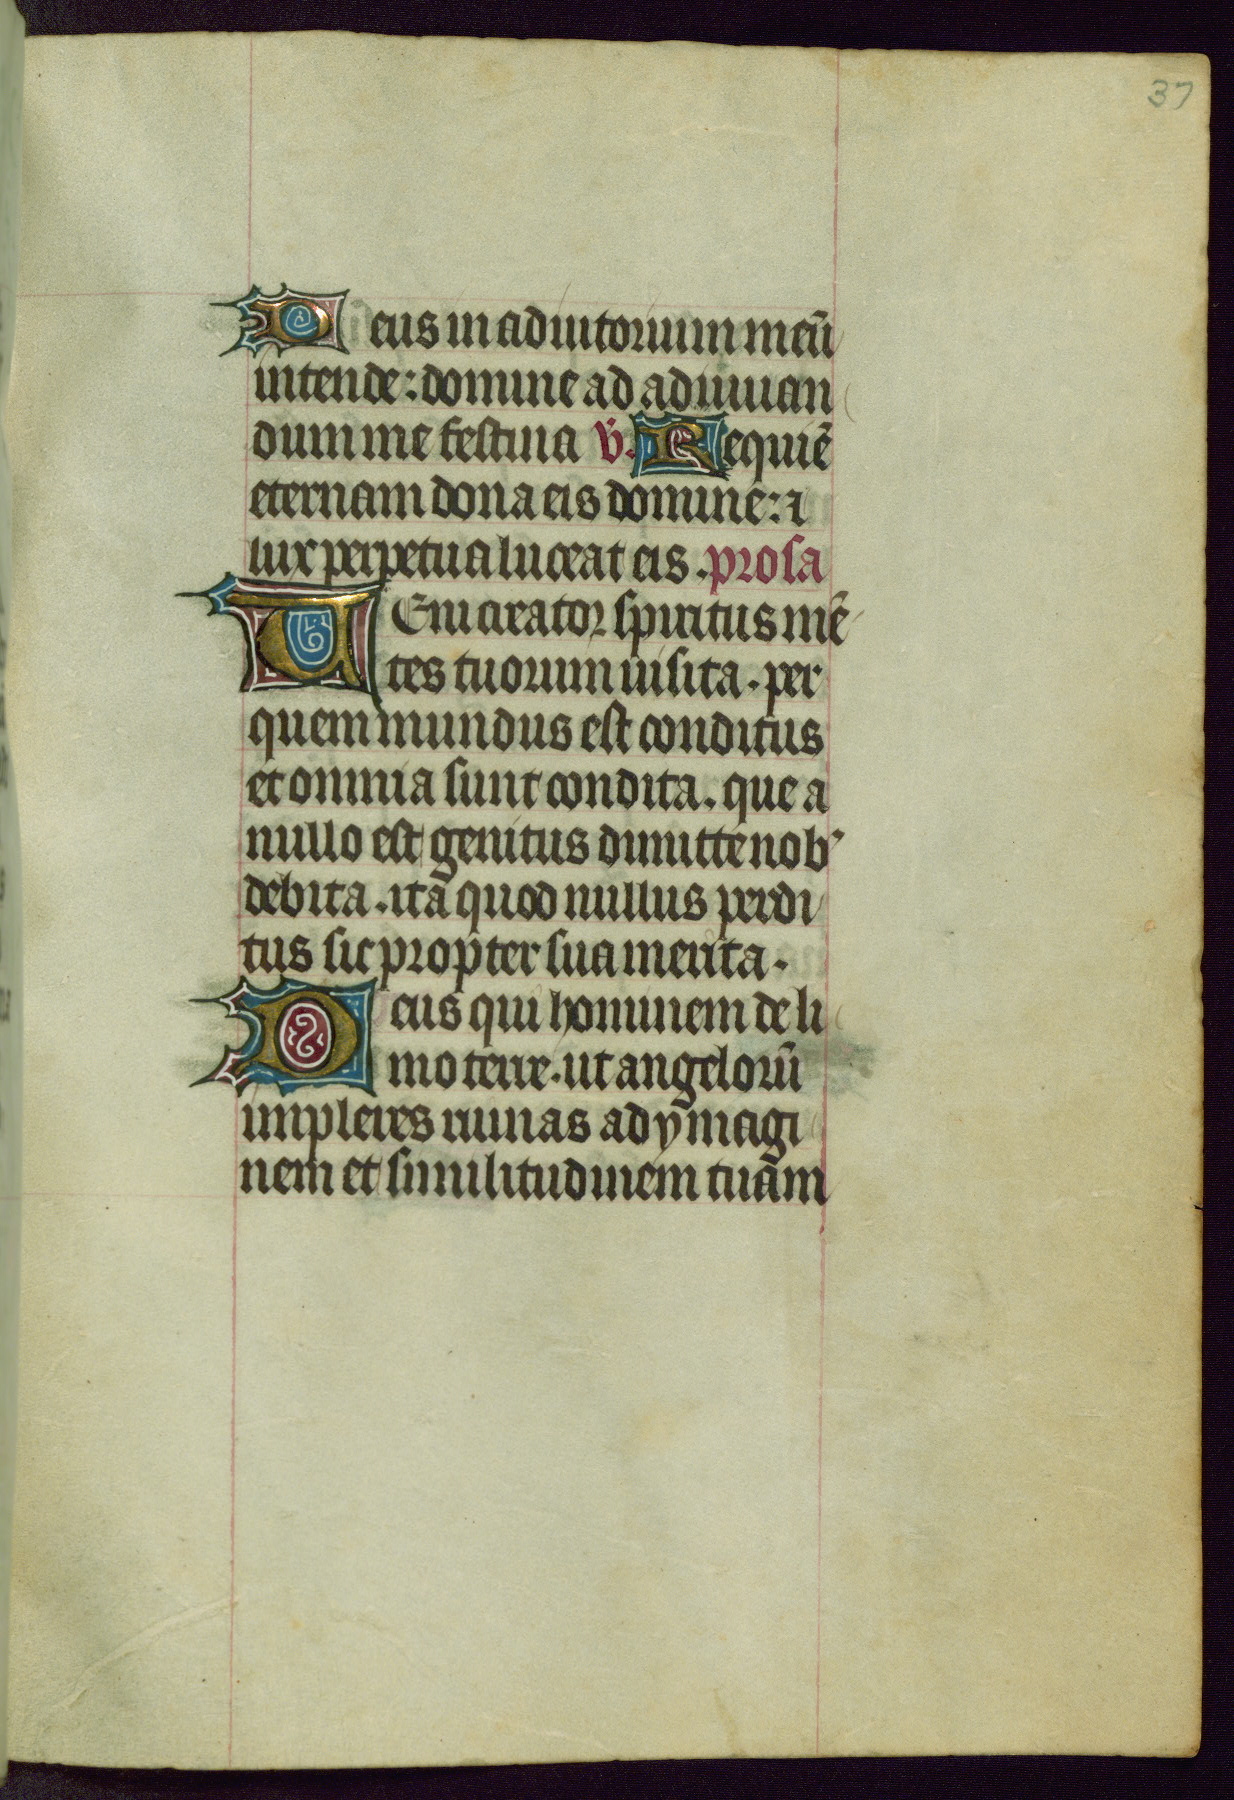 37
Deus in adiutorium meū
intende: domine ad adiuuan
dum me festina V̄. Requiē
eternam dona eis domine: ⁊
lux perpetua luceat eis. prosa
UEni creator spiritus mē
tes tuorum uisita. per
quem mundus est conditus
et omnia sunt condita. que a
nullo est genitus dimitte nobꝰ
debita. ita quod nullus perdi
tus sit propter sua merita.
Deus qui hominem de li
mo terre. ut angelorū
impleres ruinas ad ymagi
nem et similitudinem tuam